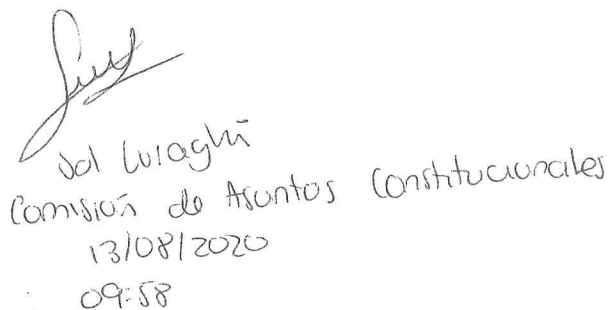 Sol Curaghi
Comisión de Asuntos Constitucionales
13/08/2020
09:58